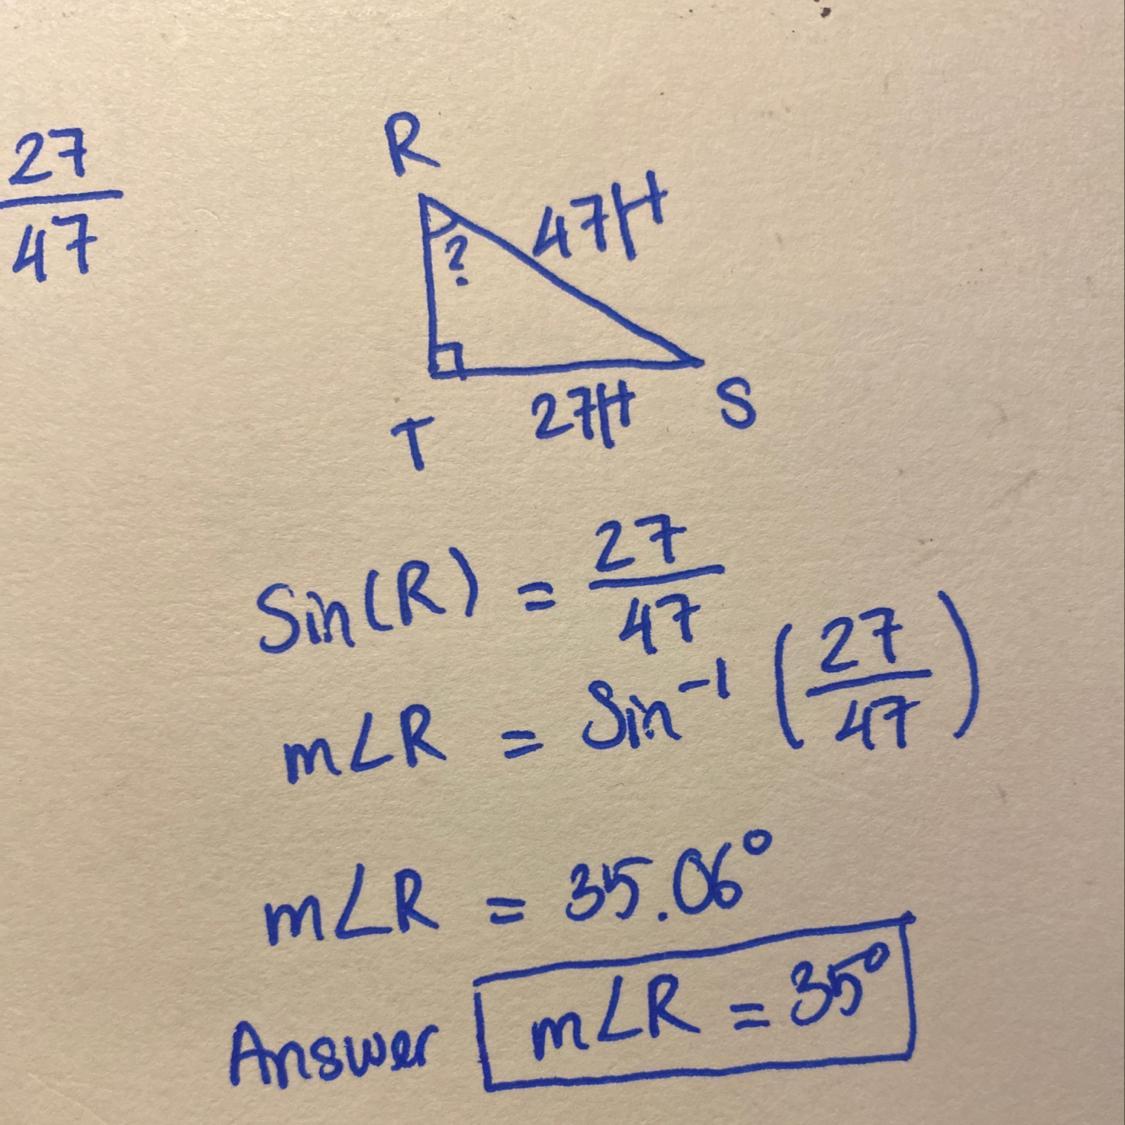 27
47
R
47ft
?
27ft
S
T
Sin(R) = 27/47
m∠R = Sin⁻¹ (27/47)
m∠R = 35.06°
Answer m∠R = 35°